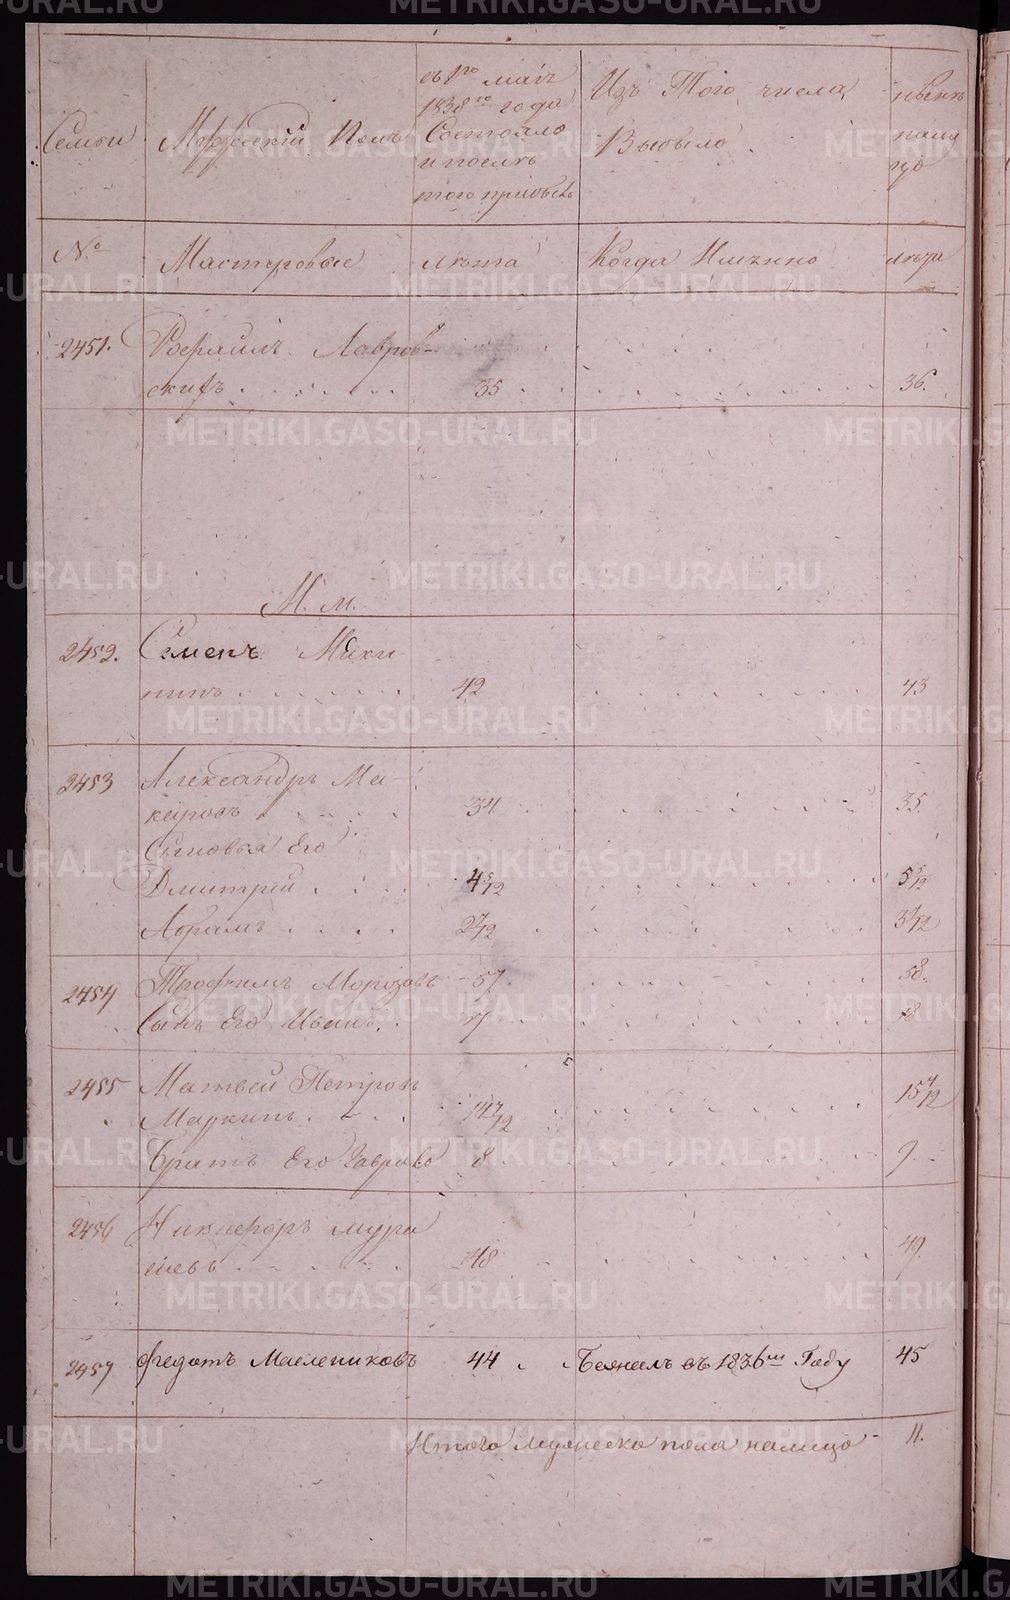 Семьи
Мужескій Полъ
съ 1го маія
1838го года
Состояло
и послѣ
того прибыль
Изъ Того числа
Выбыло
нынѣ
нали
цо
№
Мастеровые
лѣта
Когда Имянно
лѣта
2451. Рафаилъ Лавров-
скихъ 35 36.
М. м.
2452. Семенъ Маки-
нинъ 42 43
2453 Александръ Ма-
керовъ 34 35.
Сыновья Его
Дмитрей 4 5/12 5 5/12
Абрамъ 2 7/12 3 7/12
2454 Трофимъ Морозовъ 57 58.
Сынъ Его Иванъ 17 18
2455 Матвей Петровъ
Маркинъ 14 7/12 15 7/12
Братъ Его Гаврило 8 9
2456 Никифоръ мура
шевъ 48 49.
2457 Федотъ Маслениковъ 44 Бежалъ въ 1836мъ Году 45
Итого мужеска пола налицо 11.
METRIKI.GASO-URAL.RU